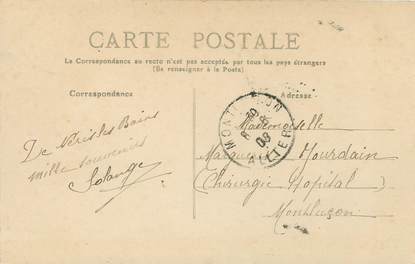 CARTE POSTALE
La Correspondance au recto n'est pas acceptée par tous les pays étrangers
(Se renseigner à la Poste)
Correspondance
Adresse
De Néris les Bains
mille souvenirs
Solange
Mademoiselle
Marguerite Jourdain
(Chirurgie Hopital)
Montluçon
ALLIER